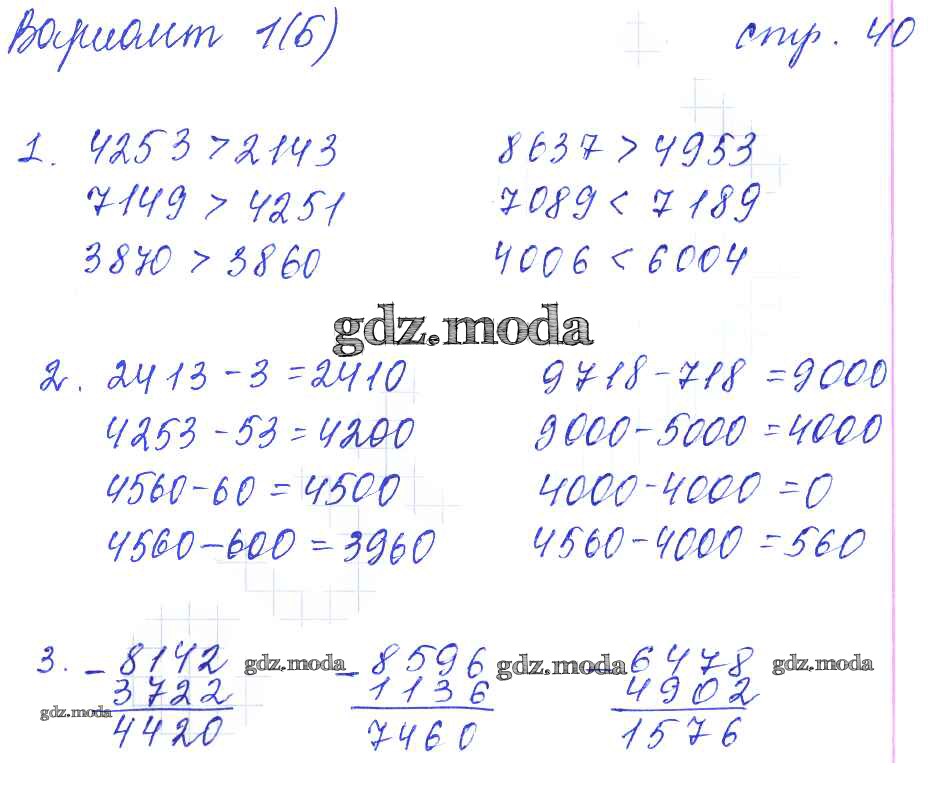 Вариант 1(Б) стр. 40
1. 4253 > 2143 8637 > 4953
7149 > 4251 7089 < 7189
3870 > 3860 4006 < 6004
gdz.moda
2. 2413 - 3 = 2410 9718 - 718 = 9000
4253 - 53 = 4200 9000 - 5000 = 4000
4560 - 60 = 4500 4000 - 4000 = 0
4560 - 600 = 3960 4560 - 4000 = 560
3. - 8142 gdz.moda - 8596 gdz.moda - 6478 gdz.moda
3722 1136 4902
gdz.moda 4420 7460 1576